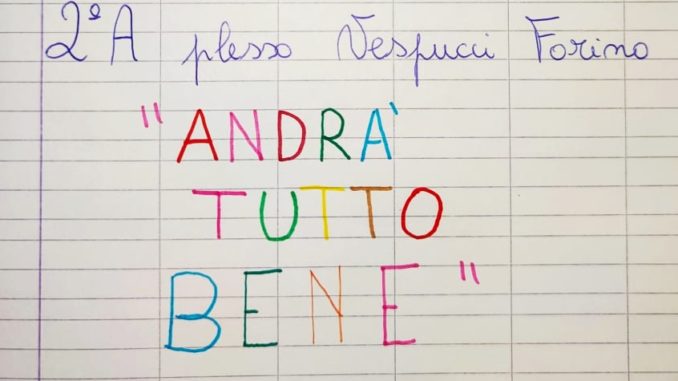 2ºA plesso Vespucci Forino
"ANDRA'
TUTTO
BENE"